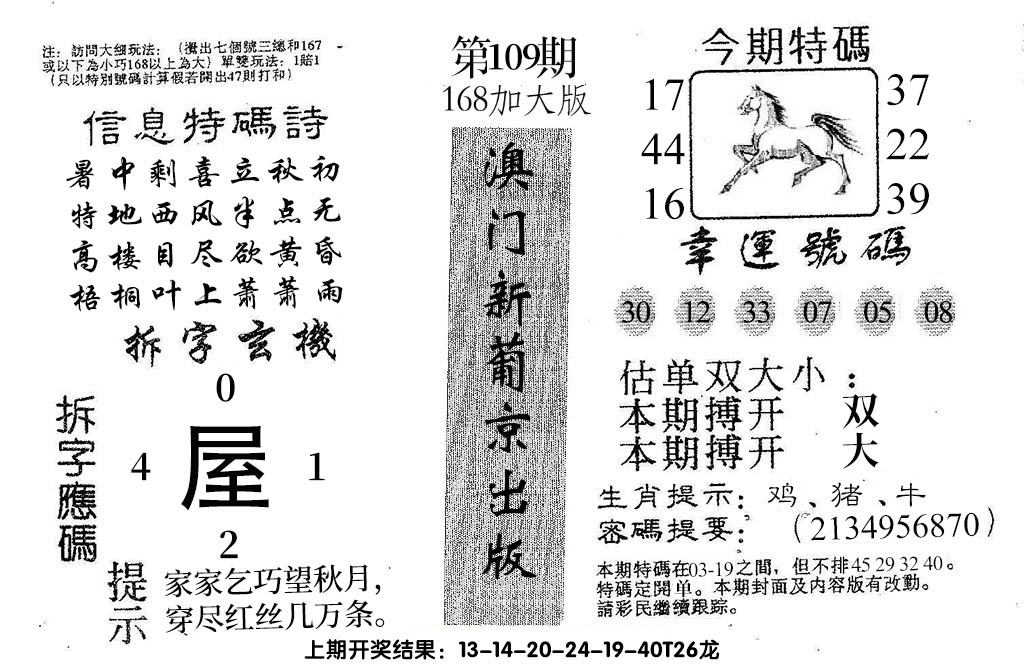 注：訪問大细玩法：（攪出七個號三總和167
或以下為小巧168以上為大）單雙玩法：1賠1
（只以特別號碼計算假若開出47則打和）
信息特碼詩
暑中剩喜立秋初
特地西风半点无
高楼目尽欲黄昏
梧桐叶上萧萧雨
拆字玄機
拆字應碼
0
4 屋 1
2
提示
家家乞巧望秋月，
穿尽红丝几万条。
第109期
168加大版
澳门新葡京出版
今期特碼
17 37
44 22
16 39
幸運號碼
30 12 33 07 05 08
估单双大小：
本期搏开 双
本期搏开 大
生肖提示：鸡、猪、牛
密碼提要：（2134956870）
本期特碼在03-19之間，但不排45 29 32 40。
特碼定開单。本期封面及内容版有改動。
請彩民繼續跟踪。
上期开奖结果：13-14-20-24-19-40T26龙